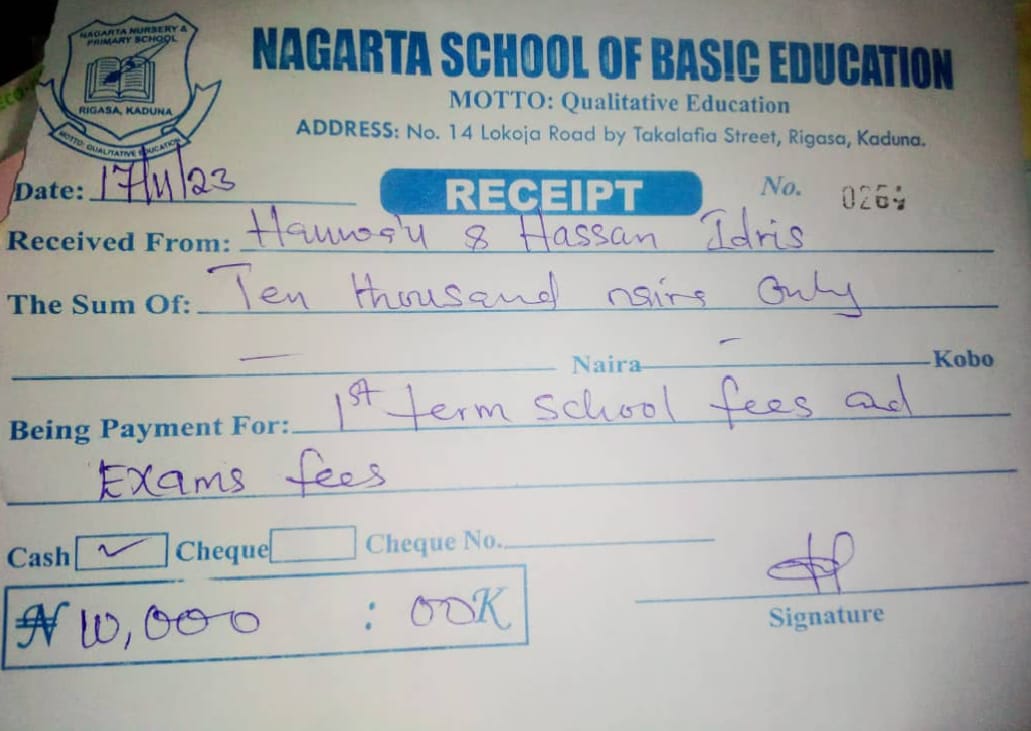 NAGARTA NURSERY &
PRIMARY SCHOOL
RIGASA, KADUNA
MOTTO: QUALITATIVE EDUCATION
NAGARTA SCHOOL OF BASIC EDUCATION
MOTTO: Qualitative Education
ADDRESS: No. 14 Lokoja Road by Takalafia Street, Rigasa, Kaduna.
Date: 17/11/23
RECEIPT
No.
Received From: & Hassan Idris
The Sum Of: Ten thousand naira Only
— Naira — Kobo
Being Payment For: 1st term school fees and
Exams fees
Cash ✓ Cheque Cheque No.
₦ 10,000 : 00K
Signature